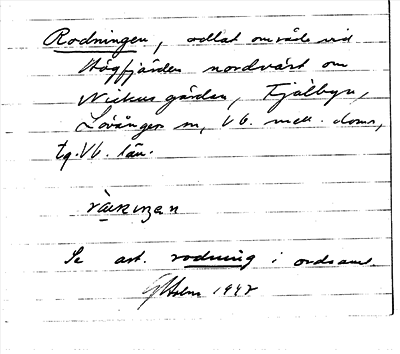 Rodningen, odlat område vid
Högfjärden nordväst om
gården, Fjälbyn,
Lövånger sn, Vb. mell. doms,
tg. Vb. län.
Se art. rodning i ordsaml.
GHolm 1947